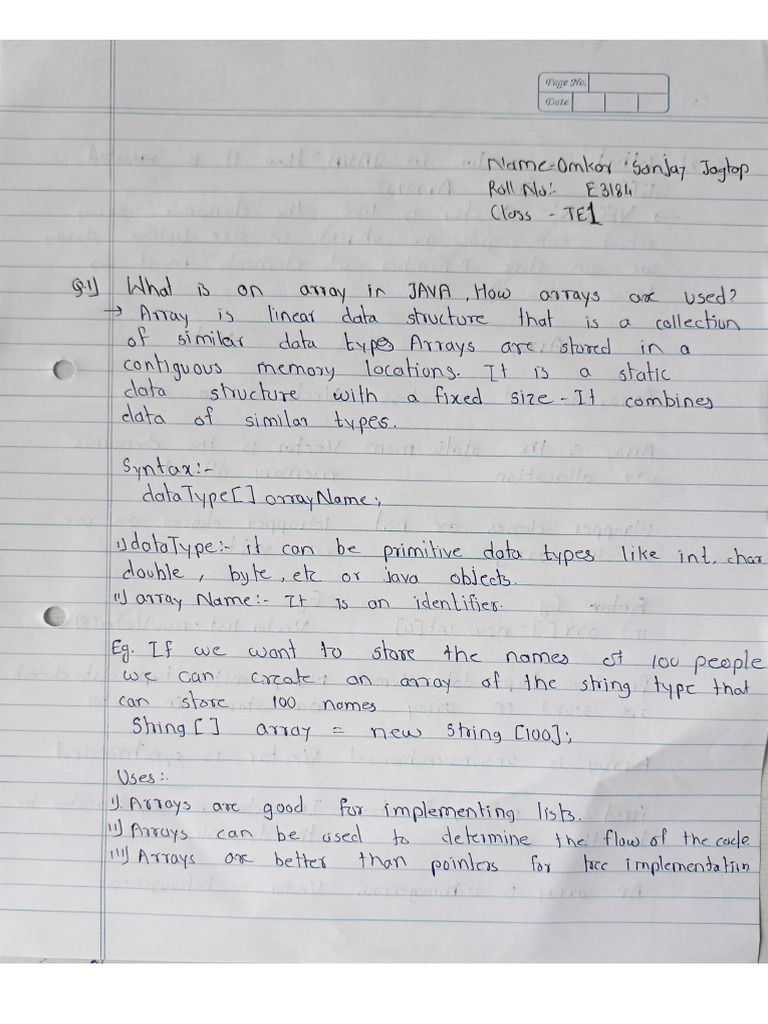 Page No.
Date
Name-Omkar Sanjay Jagtap
Roll No:- E3184
Class - TE1
Q.1) What is an array in JAVA, How arrays are used?
→ Array is linear data structure that is a collection
of similar data types Arrays are stored in a
contiguous memory locations. It is a static
data structure with a fixed size-It combines
data of similar types.
Syntax:-
dataType[] arrayName;
i) dataType:- it can be primitive data types like int, char
double, byte, etc or java objects.
ii) array Name:- It Is an identifier.
Eg. If we want to store the names of 100 people
we can create an array of the string type that
can store 100 names
String [] array = new string [100];
Uses:-
i). Arrays are good for implementing lists.
ii) Arrays can be used to determine the flow of the code
iii) Arrays are better than pointers for implementation